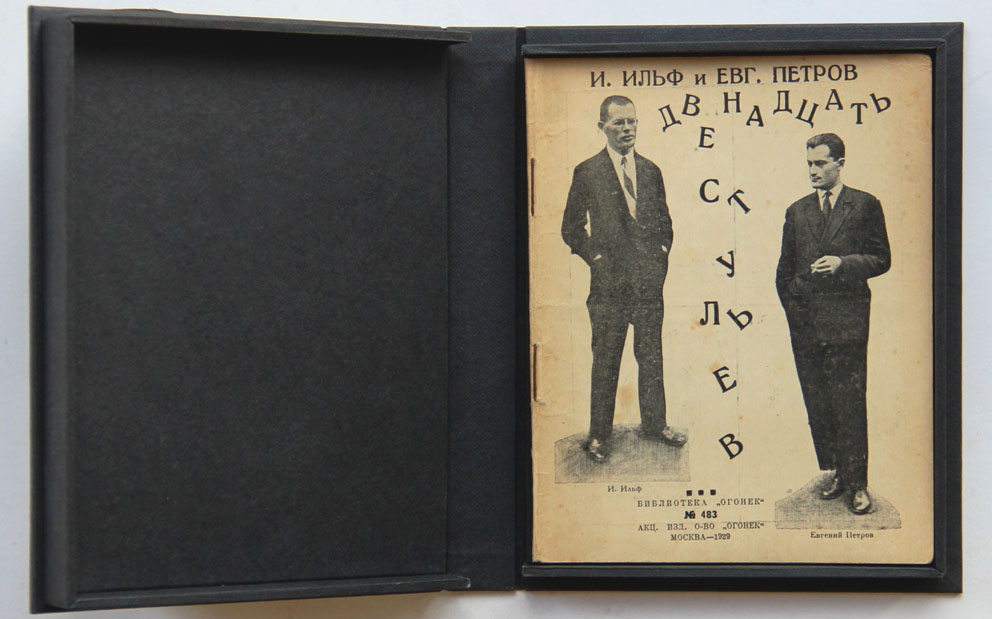 И. ИЛЬФ и ЕВГ. ПЕТРОВ
ДВЕНАДЦАТЬ
СТУЛЬЕВ
И. Ильф
БИБЛИОТЕКА „ОГОНЕК“
№ 483
АКЦ. ИЗД. О-ВО „ОГОНЕК“
МОСКВА—1929
Евгений Петров